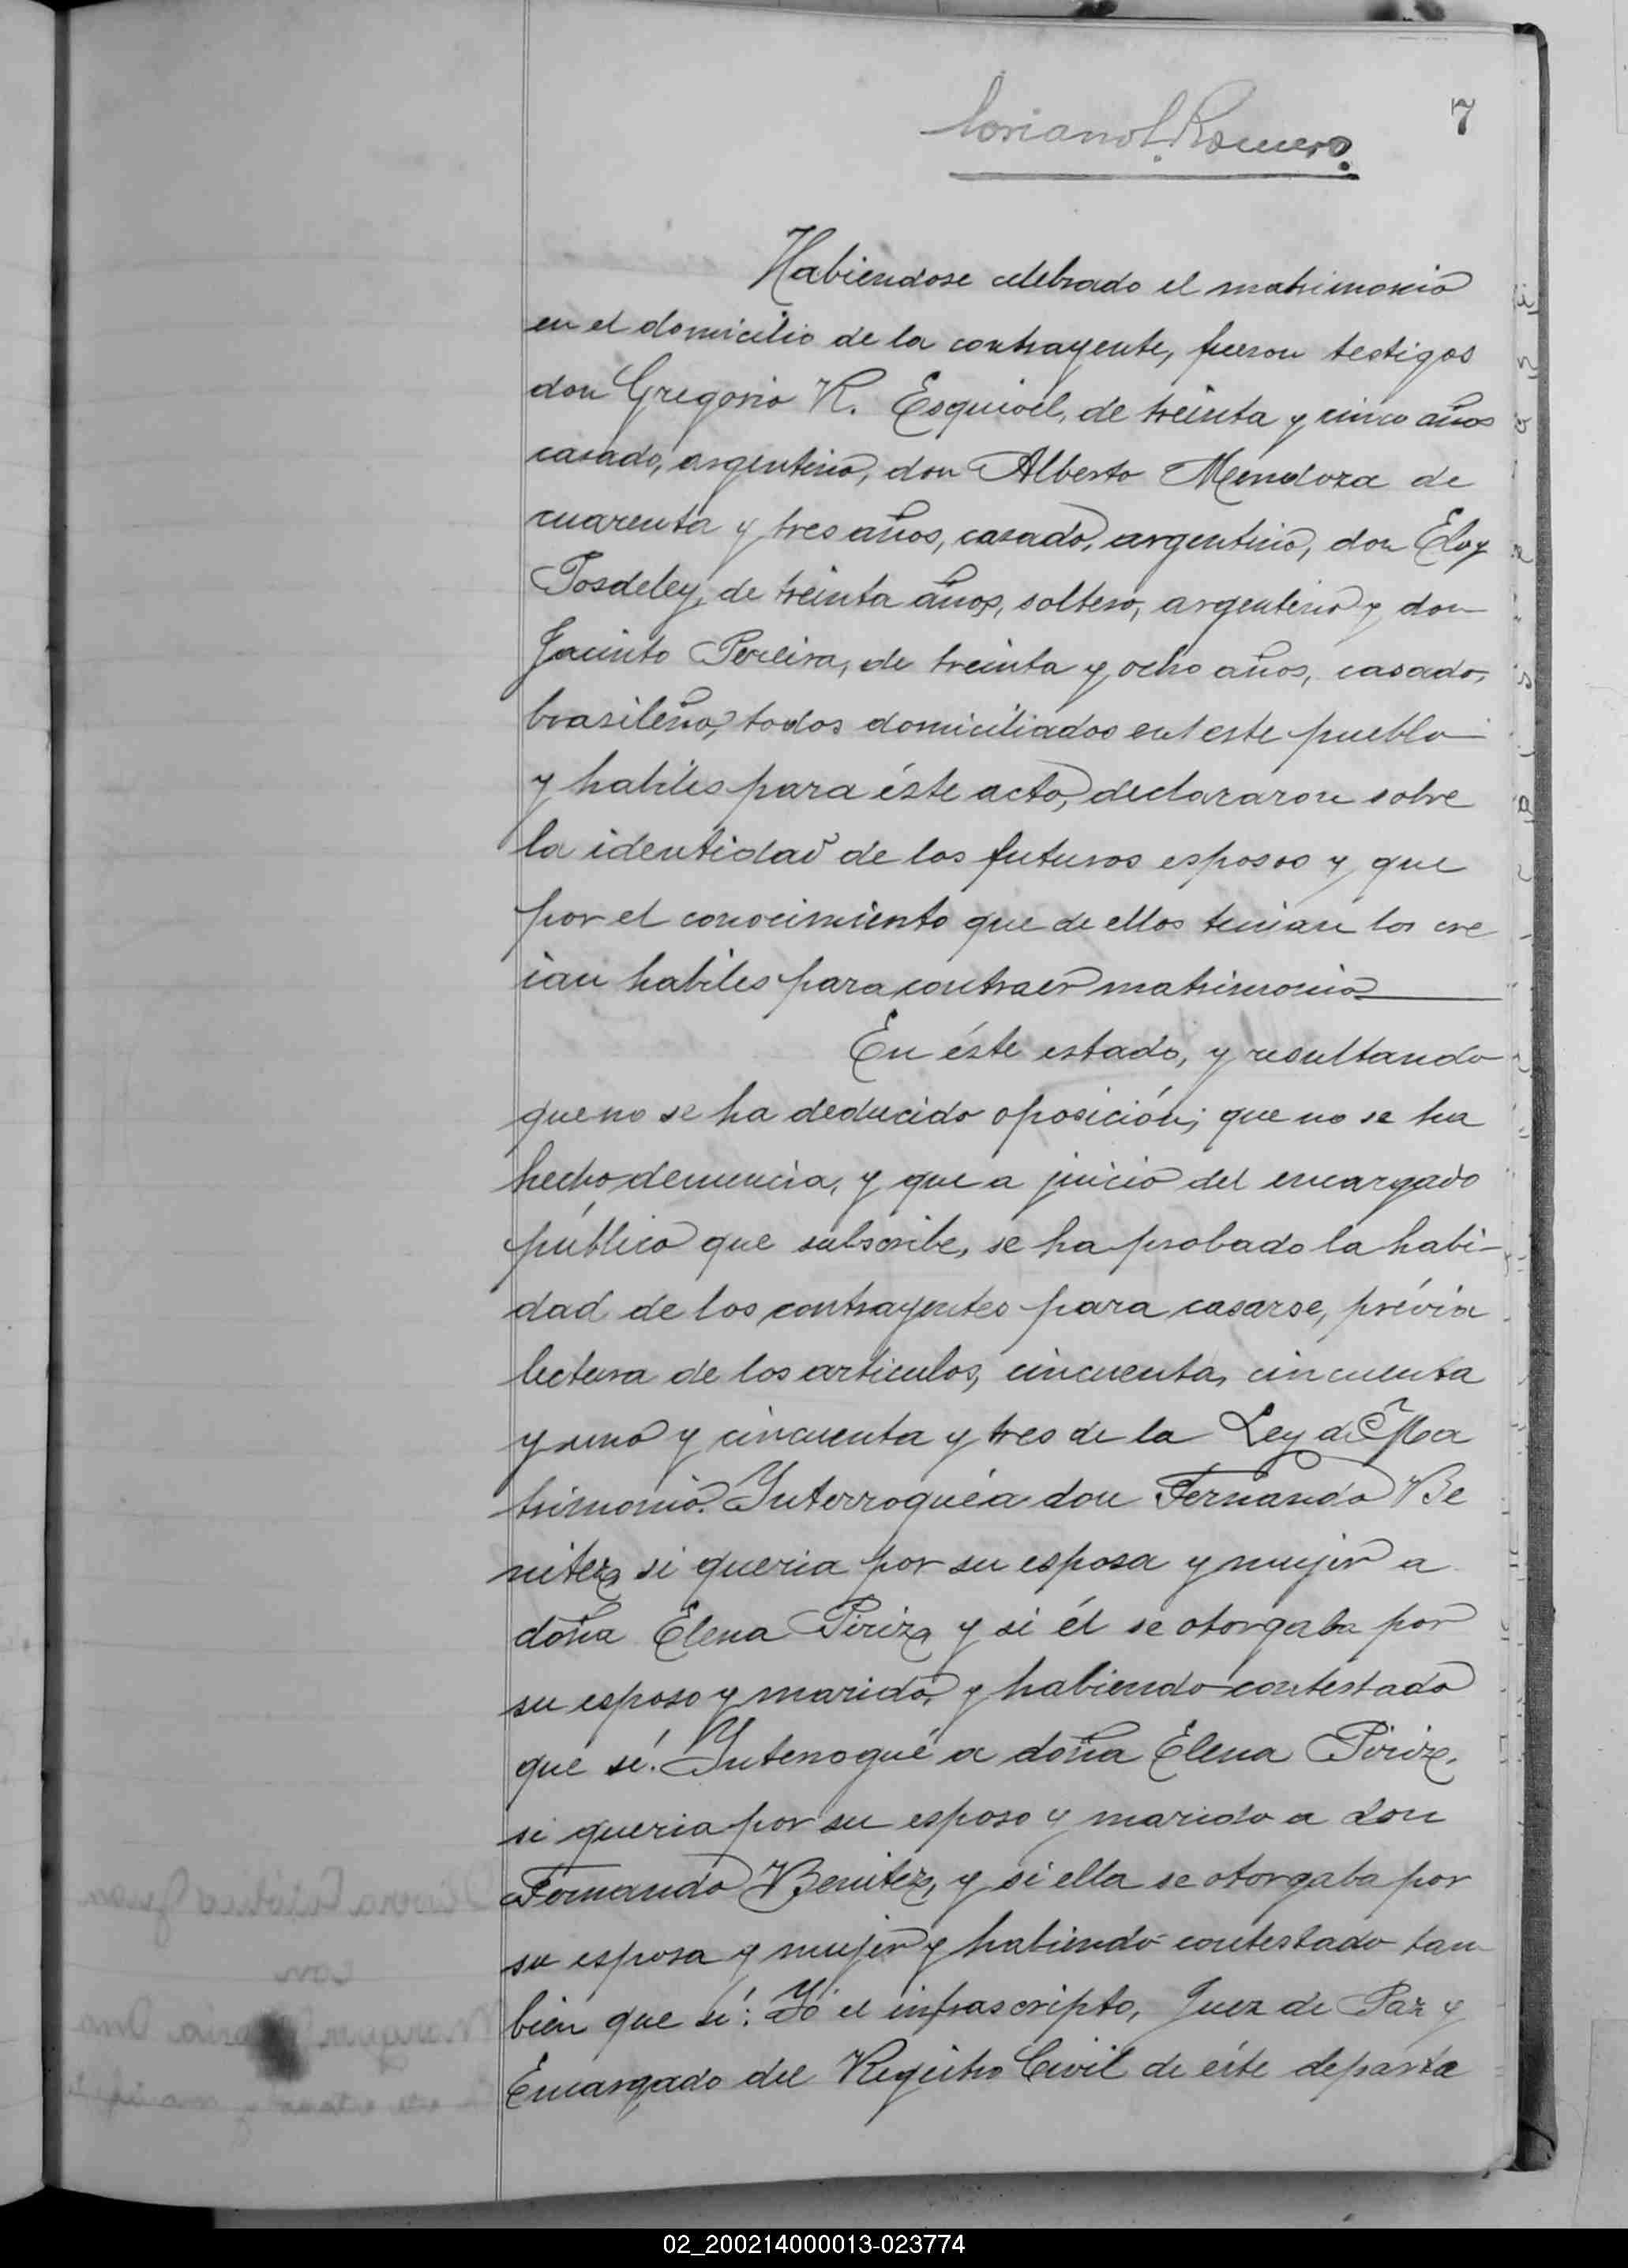 7
Romero
Habiendose celebrado el matrimonio
en el domicilio de la contrayente, fueron testigos
don Gregorio R. Esquivel, de treinta y cinco años
casado, argentino, don Alberto Mendoza de
cuarenta y tres años, casado, argentino, don Eloy
Tosdeley, de treinta años, soltero, argentino y don
Jacinto Pereira, de treinta y ocho años, casado,
brasileño, todos domiciliados en este pueblo
y habiles para éste acto, declararon sobre
la identidad de los futuros esposos y que
por el conocimiento que de ellos tenian los cre
ian habiles para contraer matrimonio
En éste estado, y resultando
que no se ha deducido oposición; que no se ha
hecho denuncia, y que a juicio del encargado
público que subscribe, se ha probado la habi-
dad de los contrayentes para casarse, prévia
lectura de los articulos, cincuenta, cincuenta
y uno y cincuenta y tres de la Ley de Ma
trimonio. Interrogué a don Fernando Be
nitez si queria por su esposa y mujer a
doña Elena Piriz y si él se otorgaba por
su esposo y marido, y habiendo contestado
que sí. Interrogué a doña Elena Piriz,
si queria por su esposo y marido a don
Fernando Benitez, y si ella se otorgaba por
su esposa y mujer y habiendo contestado tam
bien que sí: Yo el infrascripto, Juez de Paz y
Encargado del Registro Civil de éste departa
02_200214000013-023774